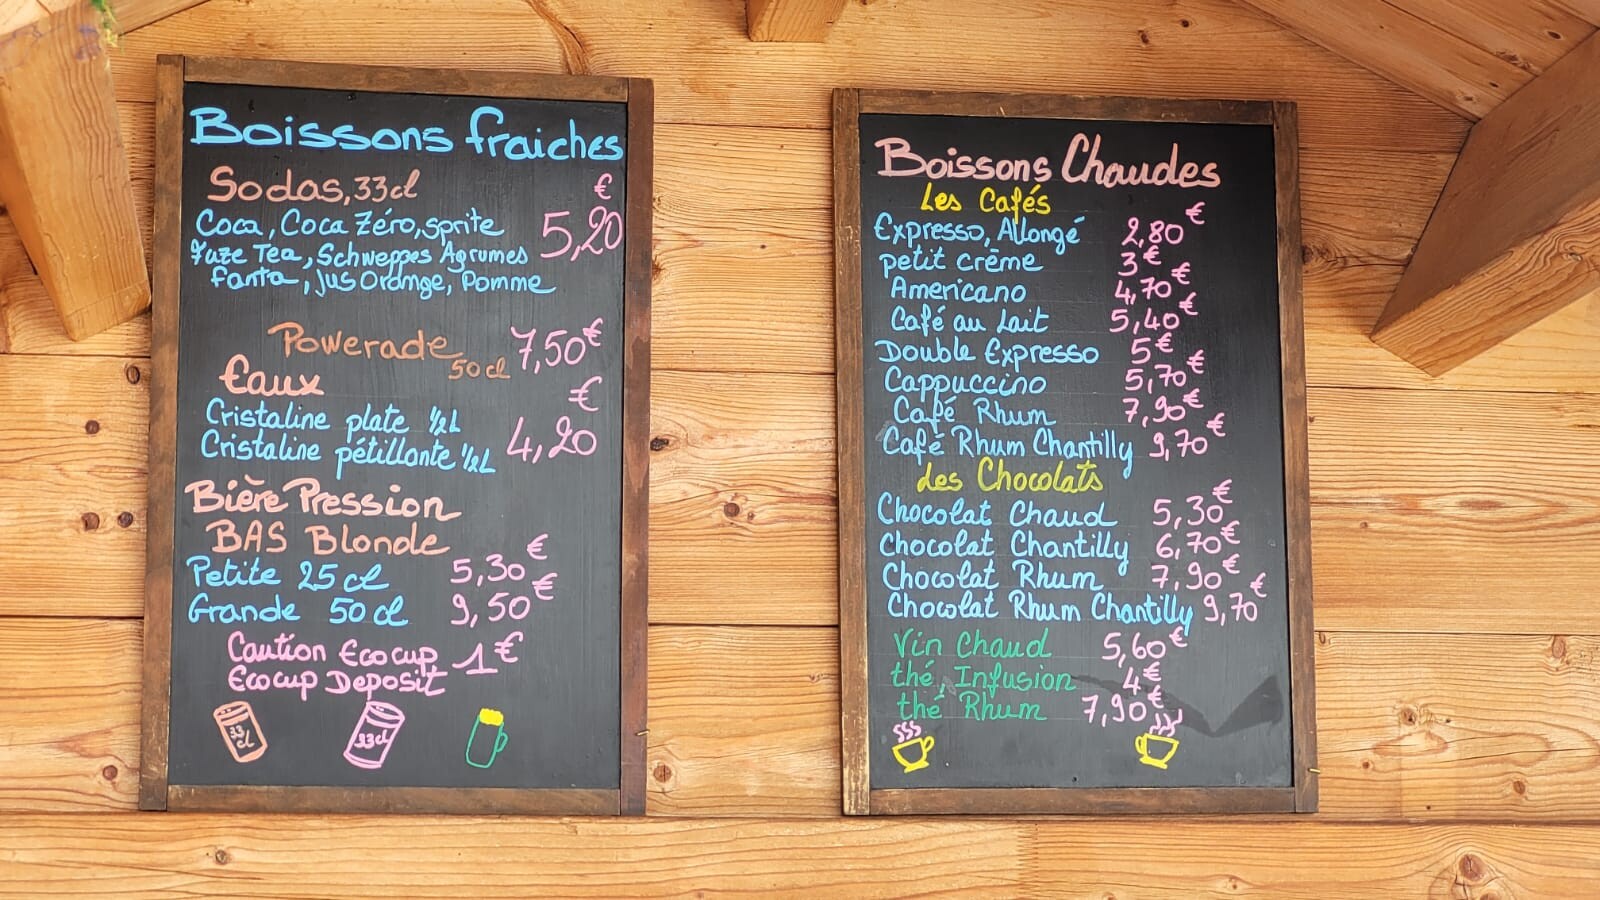 Boissons fraîches
Sodas, 33cl €
Coca, Coca Zéro, sprite 5,20
Fuze Tea, Schweppes Agrumes
fanta, jus Orange, Pomme
Powerade 50cl 7,50€
Eaux €
Cristaline plate ½L 4,20
Cristaline pétillante ½L
Bière Pression
BAS Blonde
Petite 25 cl 5,30€
Grande 50 cl 9,50€
Caution Ecocup 1€
Ecocup Deposit
33 cl
33cl
Boissons Chaudes
Les Cafés
Expresso, Allongé 2,80€
petit crème 3€
Americano 4,70€
Café au Lait 5,40€
Double Expresso 5€
Cappuccino 5,70€
Café Rhum 7,90€
Café Rhum Chantilly 9,70€
Les Chocolats
Chocolat Chaud 5,30€
Chocolat Chantilly 6,70€
Chocolat Rhum 7,90€
Chocolat Rhum Chantilly 9,70€
Vin Chaud 5,60€
thé, Infusion 4€
thé Rhum 7,90€